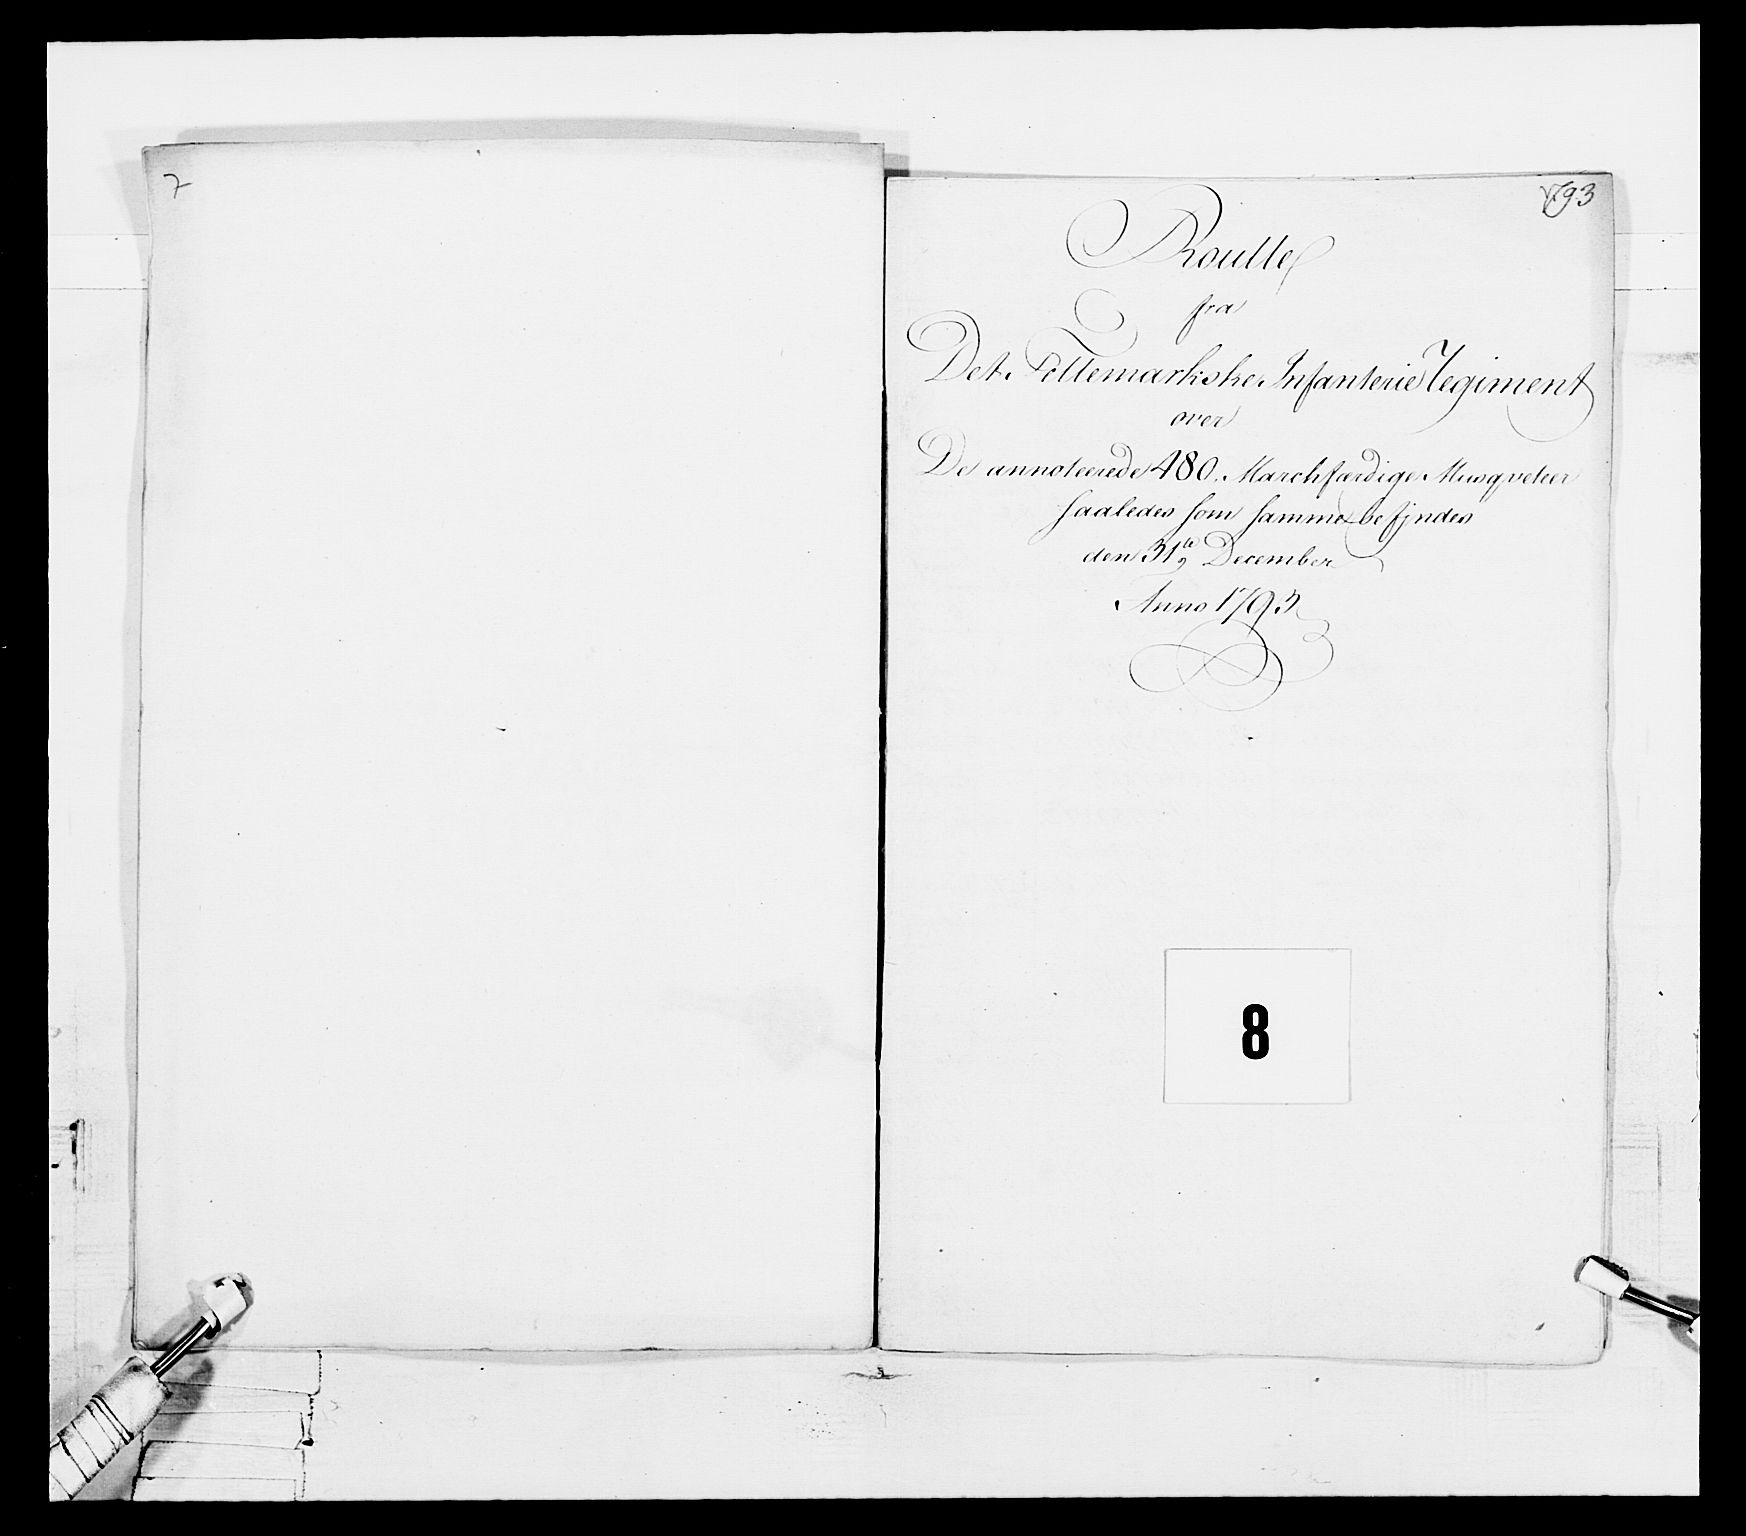 7
1793
Roulle
fra
Det Tellemarkske Infanterie Regiment
over
De annoteerede 480 Marchfærdige Musqveteer
saaledes som samme befindes
den 31te December
Anno 1793
8